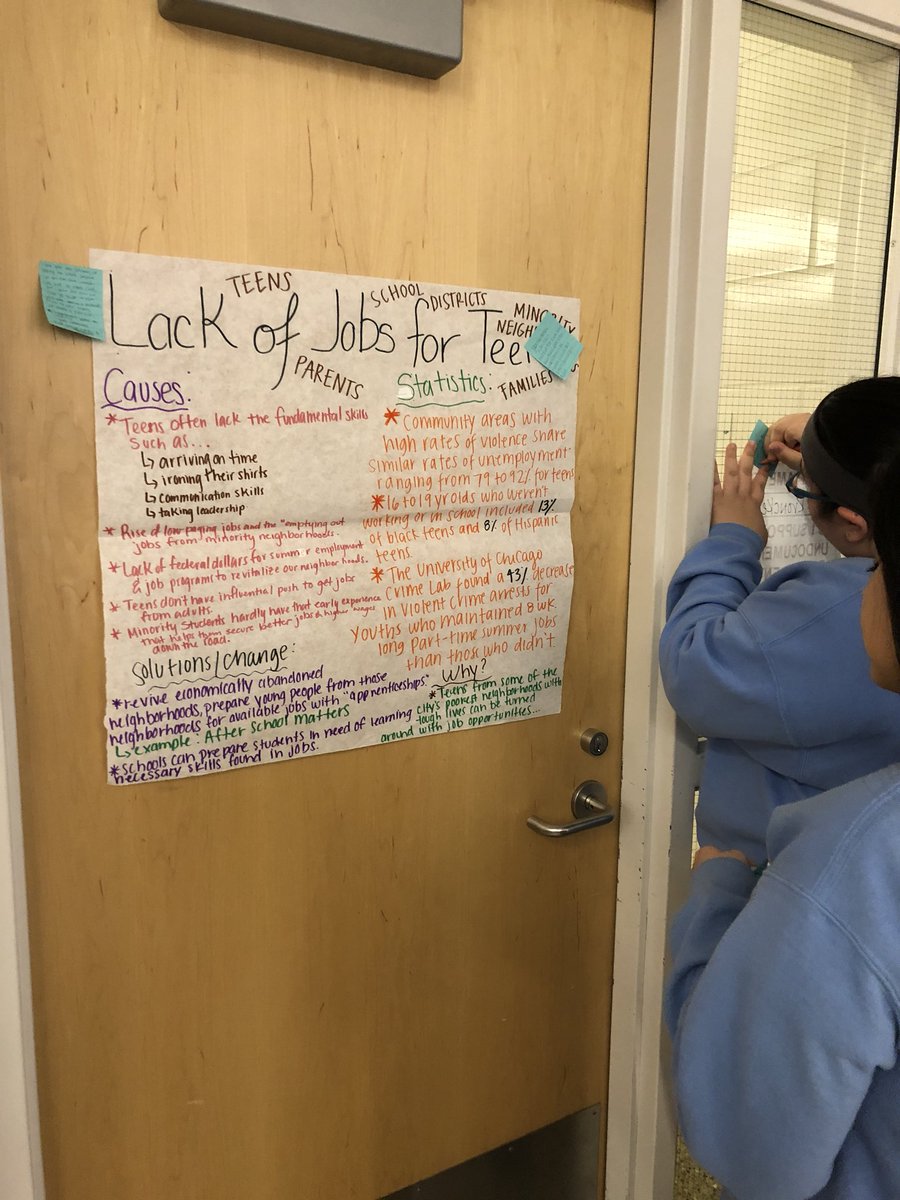 TEENS
SCHOOL DISTRICTS
MINORITY
Lack of Jobs for Teen
PARENTS
FAMILIES
Causes:
* Teens often lack the fundamental skills
such as...
↳ arriving on time
↳ ironing their shirts
↳ communication skills
↳ taking leadership
* Rise of low paying jobs and the "emptying out
jobs from minority neighborhoods.
* Lack of federal dollars for summer employment
& job programs to revitalize our neighborhoods.
* Teens don't have influential push to get jobs
from adults.
* Minority students hardly have that early experience
that helps them secure better jobs & higher wages
down the road.
Statistics:
* Community areas with
high rates of violence share
similar rates of unemployment
ranging from 79 to 92% for teens
* 16 to 19 yr olds who weren't
working or in school included 13%
of black teens and 8% of Hispanic
teens.
* The University of Chicago
Crime Lab found a 43% decrease
in violent crime arrests for
youths who maintained 8 wk.
long part-time summer jobs
than those who didn't.
Solutions/Change:
* revive economically abandoned
neighborhoods, prepare young people from those
neighborhoods for available jobs with "apprenticeships."
↳ example: After School Matters
* schools can prepare students in need of learning
necessary skills found in jobs.
Why?
* Teens from some of the
city's poorest neighborhoods with
tough lives can be turned
around with job opportunities...